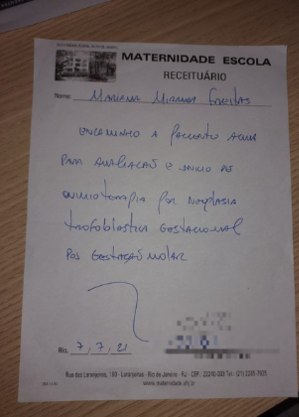 MATERNIDADE ESCOLA
RECEITUÁRIO
Nome: Mariana Miranda Freitas
Encaminho a paciente acima
para avaliação e início de
quimioterapia por neoplasia
trofoblástica gestacional
pós gestação molar
Rio, 7, 7, 21
Rua das Laranjeiras, 180 - Laranjeiras - Rio de Janeiro - RJ - CEP: 22240-003 Tel: (21)
www.maternidade.ufrj.br